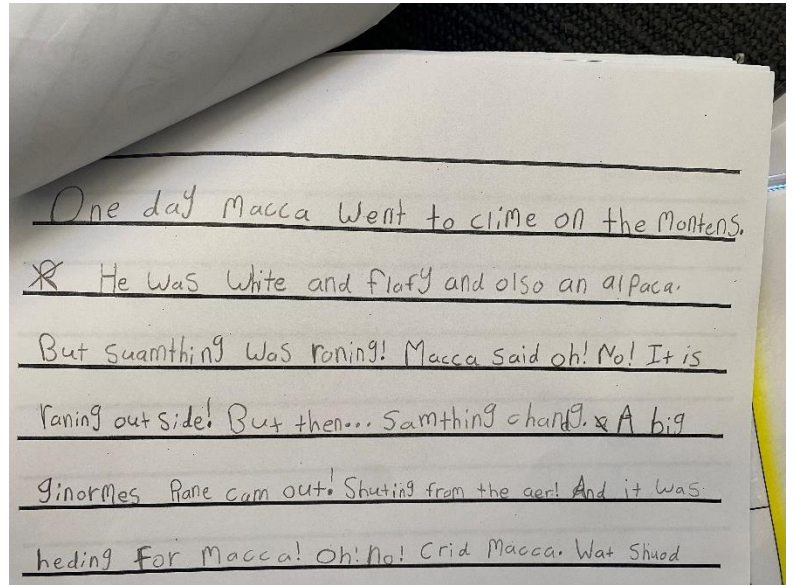 One day Macca Went to clime on the Montens.
He was White and flafy and olso an alpaca.
But suamthing was roning! Macca said oh! No! It is
raning out side! But then... Samthing chang. A big
ginormes Plane cam out! Shuting from the aer! And it was
heding For Macca! Oh! No! Crid Macca. Wat Shuod